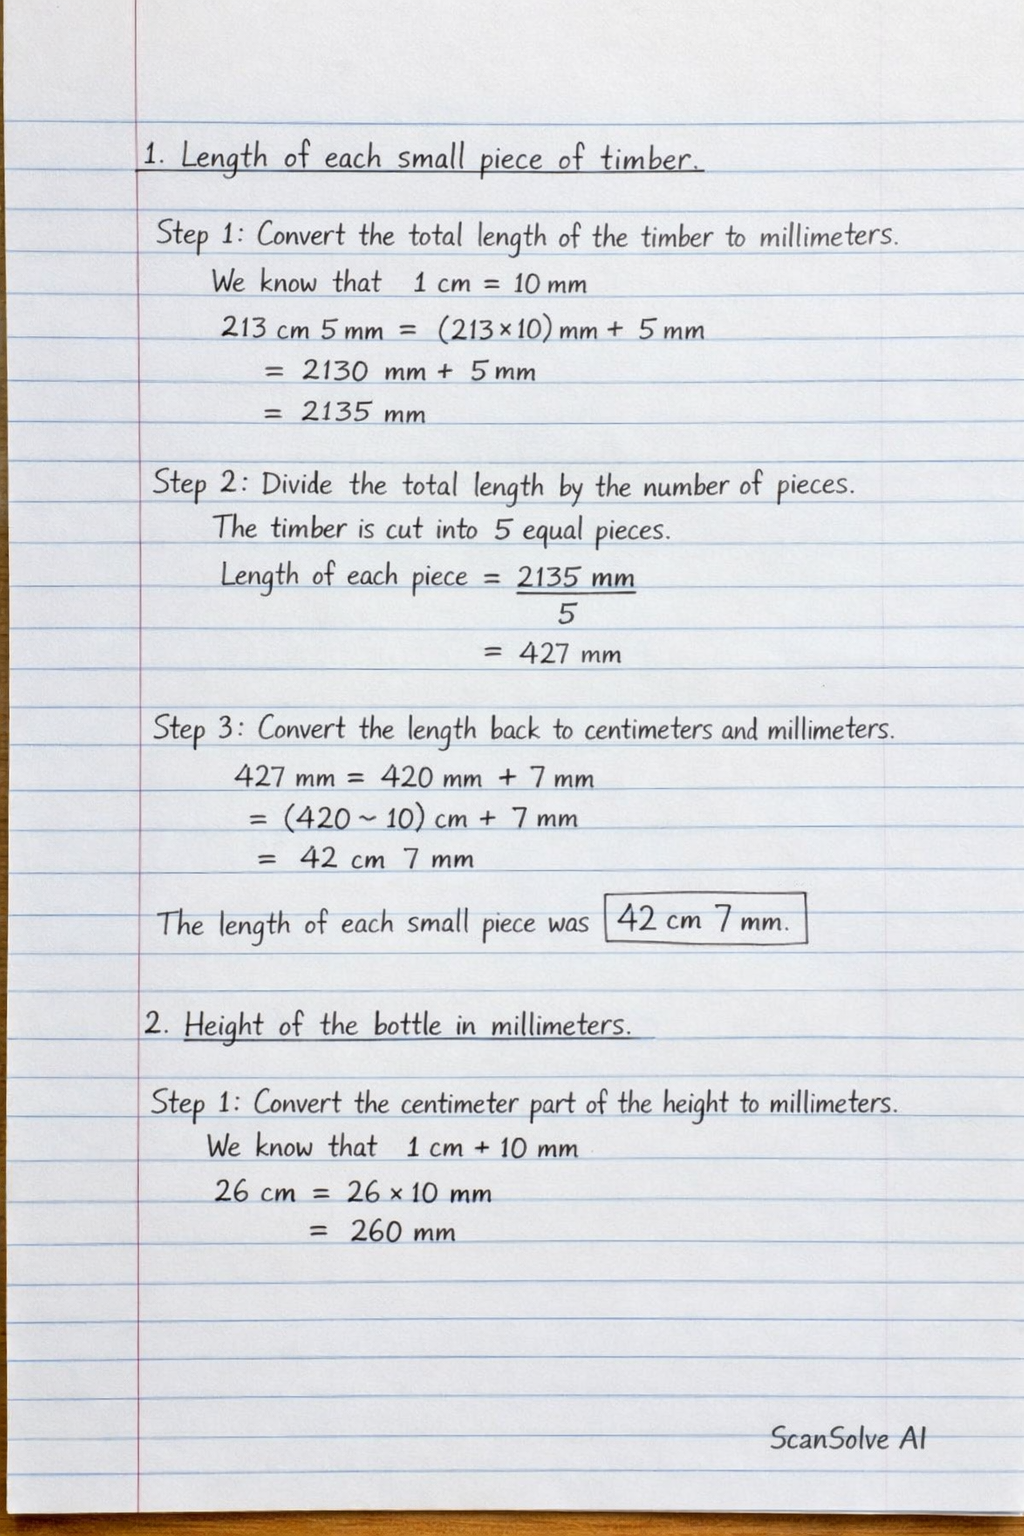 1. Length of each small piece of timber.
Step 1: Convert the total length of the timber to millimeters.
We know that 1 cm = 10 mm
213 cm 5 mm = (213×10) mm + 5 mm
= 2130 mm + 5 mm
= 2135 mm
Step 2: Divide the total length by the number of pieces.
The timber is cut into 5 equal pieces.
Length of each piece = 2135 mm
5
= 427 mm
Step 3: Convert the length back to centimeters and millimeters.
427 mm = 420 mm + 7 mm
= (420 ~ 10) cm + 7 mm
= 42 cm 7 mm
The length of each small piece was 42 cm 7 mm.
2. Height of the bottle in millimeters.
Step 1: Convert the centimeter part of the height to millimeters.
We know that 1 cm + 10 mm
26 cm = 26 × 10 mm
= 260 mm
ScanSolve AI